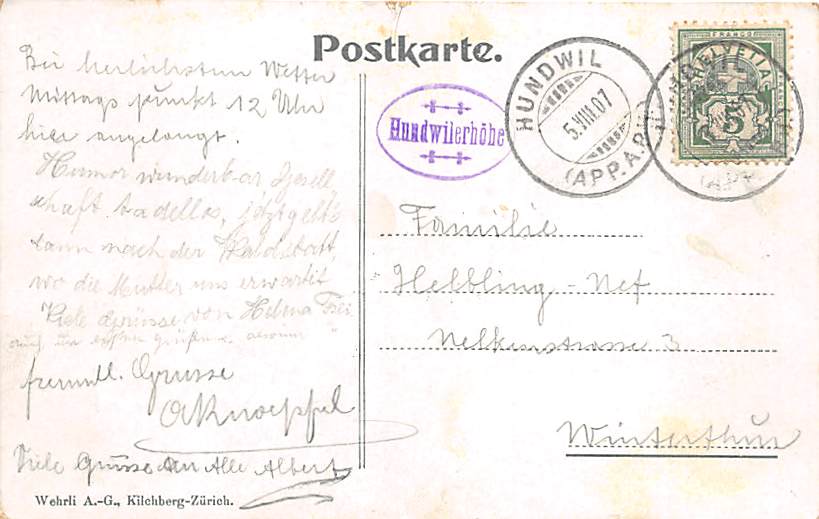 Postkarte.
Bei herlichstem Wetter
Mittags punkt 12 Uhr
hier angelangt.
Humor wunderbar Gesell
schaft tadellos, jetzt geht's
dann nach der Waldstatt,
wo die Mutter uns erwartet
Viele Grüsse von Helena Frei
freundl. Grüsse
A Knoepfel
Viele Grüsse an Alle Albert
Wehrli A.-G., Kilchberg-Zürich.
Hundwilerhöhe
HUNDWIL
5.VIII.07
(APP. A.RH.)
FRANCO
HELVETIA
5
Familie
Helbling-Nef
Nelkenstrasse 3
Winterthur